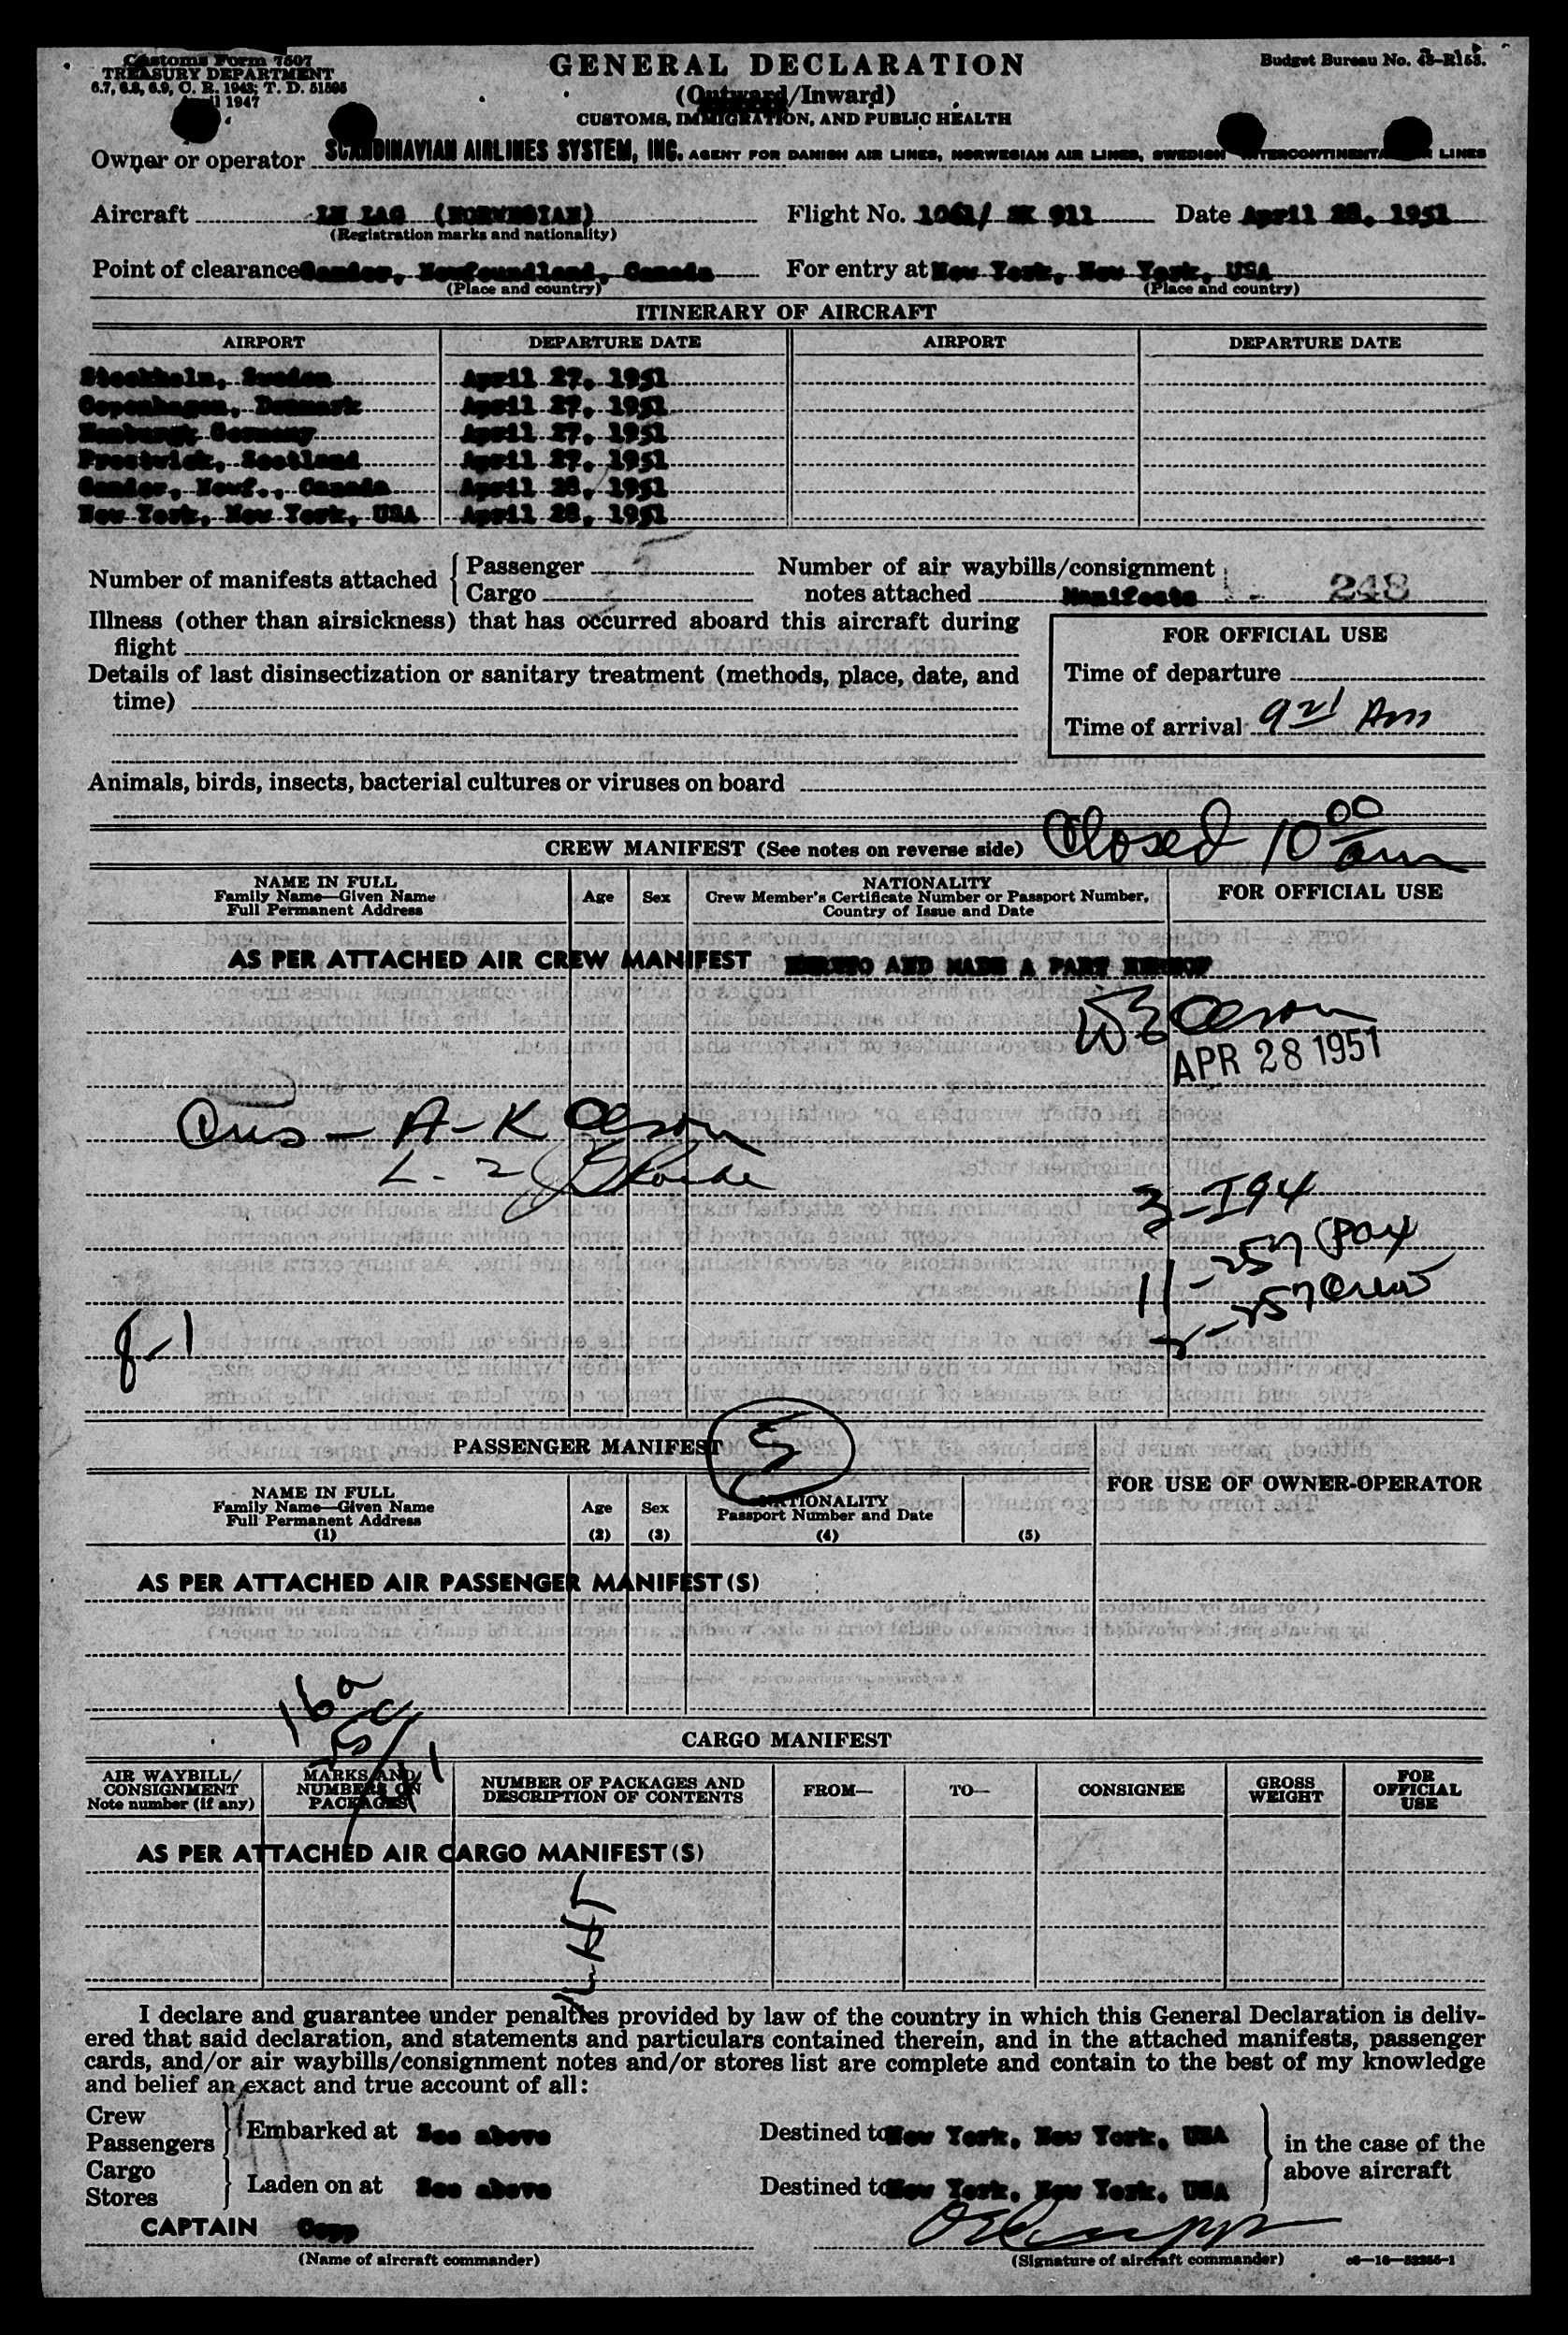 Customs Form 7507
TREASURY DEPARTMENT
6.7, 6.8, 6.9, C. R. 1943; T. D. 51595
April 1947
GENERAL DECLARATION
(Outward/Inward)
CUSTOMS, IMMIGRATION, AND PUBLIC HEALTH
Budget Bureau No. 43-R153.
Owner or operator SCANDINAVIAN AIRLINES SYSTEM, INC. AGENT FOR DANISH AIR LINES, NORWEGIAN AIR LINES, SWEDISH INTERCONTINENTAL AIR LINES
Aircraft LN LAG (NORWEGIAN) Flight No. 1061/ SK 911 Date April 28, 1951
(Registration marks and nationality)
Point of clearance Gander, Newfoundland, Canada For entry at New York, New York, USA
(Place and country) (Place and country)
ITINERARY OF AIRCRAFT
AIRPORT DEPARTURE DATE AIRPORT DEPARTURE DATE
Stockholm, Sweden April 27, 1951
Copenhagen, Denmark April 27, 1951
Hamburg, Germany April 27, 1951
Prestwick, Scotland April 27, 1951
Gander, Newf., Canada April 28, 1951
New York, New York, USA April 28, 1951
Number of manifests attached { Passenger 5
Cargo
Number of air waybills/consignment
notes attached Manifests 248
Illness (other than airsickness) that has occurred aboard this aircraft during
flight
Details of last disinsectization or sanitary treatment (methods, place, date, and
time)
FOR OFFICIAL USE
Time of departure
Time of arrival 9 21 Am
Animals, birds, insects, bacterial cultures or viruses on board
Closed 10 00 am
CREW MANIFEST (See notes on reverse side)
NAME IN FULL
Family Name—Given Name
Full Permanent Address
Age
Sex
NATIONALITY
Crew Member's Certificate Number or Passport Number,
Country of Issue and Date
FOR OFFICIAL USE
AS PER ATTACHED AIR CREW MANIFEST HERETO AND MADE A PART HEREOF
W E Olson
APR 28 1951
Cus - A-K Olson
L-2
3-I94
11-257 Pax
257 Crew
8-1
PASSENGER MANIFEST
5
NAME IN FULL
Family Name—Given Name
Full Permanent Address
(1)
Age
(2)
Sex
(3)
NATIONALITY
Passport Number and Date
(4)
(5)
FOR USE OF OWNER-OPERATOR
AS PER ATTACHED AIR PASSENGER MANIFEST(S)
16a
CARGO MANIFEST
AIR WAYBILL/
CONSIGNMENT
Note number (if any)
MARKS AND
NUMBERS ON
PACKAGES
NUMBER OF PACKAGES AND
DESCRIPTION OF CONTENTS
FROM—
TO—
CONSIGNEE
GROSS
WEIGHT
FOR
OFFICIAL
USE
AS PER ATTACHED AIR CARGO MANIFEST(S)
I declare and guarantee under penalties provided by law of the country in which this General Declaration is deliv-
ered that said declaration, and statements and particulars contained therein, and in the attached manifests, passenger
cards, and/or air waybills/consignment notes and/or stores list are complete and contain to the best of my knowledge
and belief an exact and true account of all:
Crew
Passengers } Embarked at See above Destined to New York, New York, USA
Cargo
Stores } Laden on at See above Destined to New York, New York, USA
in the case of the
above aircraft
CAPTAIN
(Name of aircraft commander) (Signature of aircraft commander) c6—16—52255-1